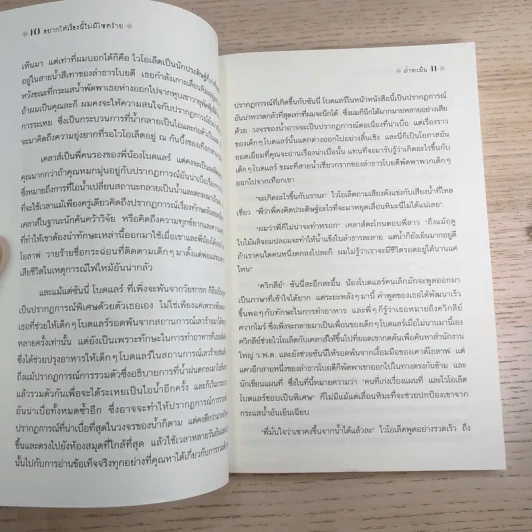 10 อยากให้เรื่องนี้ไม่มีโชคร้าย
เห็นมา แต่เท่าที่ผมบอกได้ก็คือ ไวโอเล็ตเป็นนักประดิษฐ์
อยู่ในสายน้ำสีเทาของลำธารโบยตี เธอกำลังเกาะเลื่อน
หวังขณะที่กระแสน้ำพัดพาเธอห่างออกไปจากหุบเขา
ถ้าผมเป็นคุณละก็ ผมคงจะให้ความสนใจกับปรากฏการณ์
การระเหย ซึ่งเป็นกระบวนการที่น้ำกลายเป็นไอและก่อตัว
จะมาคิดถึงความยุ่งยากที่รอไวโอเล็ตอยู่ ณ ก้นบึ้งของ
เคลาส์เป็นพี่คนรองของพี่น้องโบดแลร์ แต่คงจะเป็น
คุณมากกว่าถ้าคุณหมกมุ่นอยู่กับปรากฏการณ์อันน่าเบื่อ
ซึ่งหมายถึงการที่ไอน้ำเปลี่ยนสถานะกลายเป็นน้ำและตกลงมา
ที่จะใช้เวลาแม้เพียงครู่เดียวคิดถึงปรากฏการณ์เรื่องทักษะ
เคลาส์ในฐานะนักค้นคว้าวิจัย หรือคิดถึงความทุกข์ยาก
ที่ทำให้เขาต้องนำทักษะเหล่านี้ออกมาใช้เมื่อเขาและพี่น้อง
โอลาฟ วายร้ายชื่อกระฉ่อนที่ติดตามเด็กๆ มาตั้งแต่พ่อแม่
เสียชีวิตในเหตุการณ์ไฟไหม้อันน่ากลัว
และแม้แต่ซันนี่ โบดแลร์ ที่เพิ่งจะพ้นจากวัยทารก ก็ยัง
ปรากฏการณ์พิเศษด้วยตัวเธอเอง ไม่ใช่เพียงแค่
เธอที่ช่วยให้เด็กๆ โบดแลร์รอดพ้นจากสถานการณ์เลวร้าย
หลายครั้งเท่านั้น แต่ยังเป็นเพราะทักษะในการทำอาหาร
ซึ่งได้ช่วยปรุงอาหารให้เด็กๆ โบดแลร์ในสถานการณ์เลวร้าย
ถึงแม้ปรากฏการณ์การรวมตัวซึ่งอธิบายการที่น้ำฝนตกลงมา
แล้วรวมตัวกันเพื่อจะได้ระเหยเป็นไอน้ำอีกครั้ง และก็เริ่ม
อันน่าเบื่อทั้งหมดซ้ำอีก ซึ่งอาจจะทำให้ปรากฏการณ์
ปรากฏการณ์ที่น่าเบื่อที่สุดในวงจรของน้ำก็ตาม แต่คงดีกว่า
ขึ้นและตรงไปยังห้องสมุดที่ใกล้ที่สุด แล้วใช้เวลาหลายวัน
นั้นไปกับการอ่านข้อเท็จจริงทุกอย่างที่คุณหาได้เกี่ยวกับการรวมตัว
ถ้ำทะมึน 11
ปรากฏการณ์ที่เกิดขึ้นกับซันนี่ โบดแลร์ในหน้าหนังสือนี้เป็นปรากฏการณ์
อันน่าหวาดกลัวที่สุดเท่าที่ผมจะนึกได้ ซึ่งผมก็นึกได้มากมายหลายอย่างเสีย
ด้วย วงจรของน้ำอาจจะเป็นปรากฏการณ์ต่อเนื่องที่น่าเบื่อ แต่เรื่องราว
ของเด็กๆ โบดแลร์นั้นแตกต่างออกไปอย่างสิ้นเชิง และนี่ก็เป็นโอกาสอัน
ยอดเยี่ยมที่คุณจะอ่านเรื่องน่าเบื่อนั้น แทนที่จะมารับรู้ว่าเกิดอะไรขึ้นกับ
เด็กๆ โบดแลร์ ขณะที่สายน้ำเชี่ยวกรากของลำธารโบยตีพัดพาพวกเด็กๆ
ออกไปจากเทือกเขา
“จะเกิดอะไรขึ้นกับเรานะ” ไวโอเล็ตถามเสียงดังแข่งกับเสียงน้ำที่ไหล
เชี่ยว “พี่ว่าพี่คงคิดประดิษฐ์อะไรที่จะมาหยุดเลื่อนหิมะนี้ไม่ได้แน่เลย”
“ผมว่าพี่ก็ไม่น่าจะทำหรอก” เคลาส์ตะโกนตอบพี่สาว “ถึงแม้ฤดู
ใบไม้ผลิจะมาทำให้น้ำแข็งในลำธารละลาย แต่น้ำก็ยังเย็นมากอยู่ดี
ถ้าเราคนใดคนหนึ่งตกลงไปละก็ ผมไม่รู้ว่าเราจะมีชีวิตรอดอยู่ได้นานแค่
ไหน”
“ควิกลีย์” ซันนี่สะอึกสะอื้น น้องโบดแลร์คนเล็กมักจะพูดออกมา
เป็นภาษาที่เข้าใจได้ยาก แต่ระยะหลังๆ มานี้ คำพูดของเธอได้พัฒนาเร็ว
ขึ้นพอๆ กับทักษะในการทำอาหาร และพี่ๆ ก็รู้ว่าเธอหมายถึงควิกลีย์
ควากไมร์ ซึ่งเพิ่งจะกลายมาเป็นเพื่อนของเด็กๆ โบดแลร์เมื่อไม่นานมานี้เอง
ควิกลีย์ช่วยไวโอเล็ตกับเคลาส์ให้ขึ้นไปที่ยอดเขากดตันเพื่อค้นหาสำนักงาน
ใหญ่ ว.ฟ.ด. และยังช่วยซันนี่ให้รอดพ้นจากเงื้อมมือของเคาต์โอลาฟ แต่
แควอีกสายหนึ่งของลำธารโบยตีก็พัดพาเขาออกไปในทางตรงกันข้าม และ
นักเขียนแผนที่ ซึ่งในที่นี้หมายความว่า “คนที่เก่งเรื่องแผนที่ และไวโอเล็ต
โบดแลร์ชอบเป็นพิเศษ” ก็ไม่มีแม้แต่เลื่อนหิมะที่จะช่วยปกป้องเขาจาก
กระแสน้ำอันเย็นเฉียบ
“พี่มั่นใจว่าเขาคงขึ้นจากน้ำได้แล้วละ” ไวโอเล็ตพูดอย่างรวดเร็ว ถึง